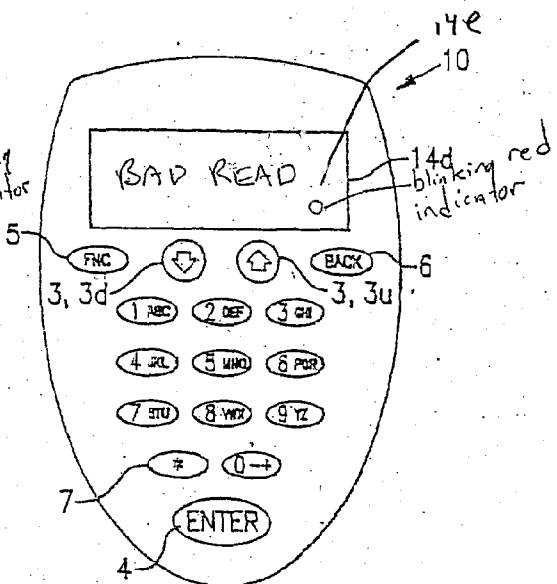 14e
10
BAD READ
14d
blinking red
indicator
5
FNC
BACK
6
3, 3d
3, 3u
1 ABC 2 DEF 3 GHI
4 JKL 5 MNO 6 PQR
7 STU 8 VWX 9 YZ
7
* 0
ENTER
4